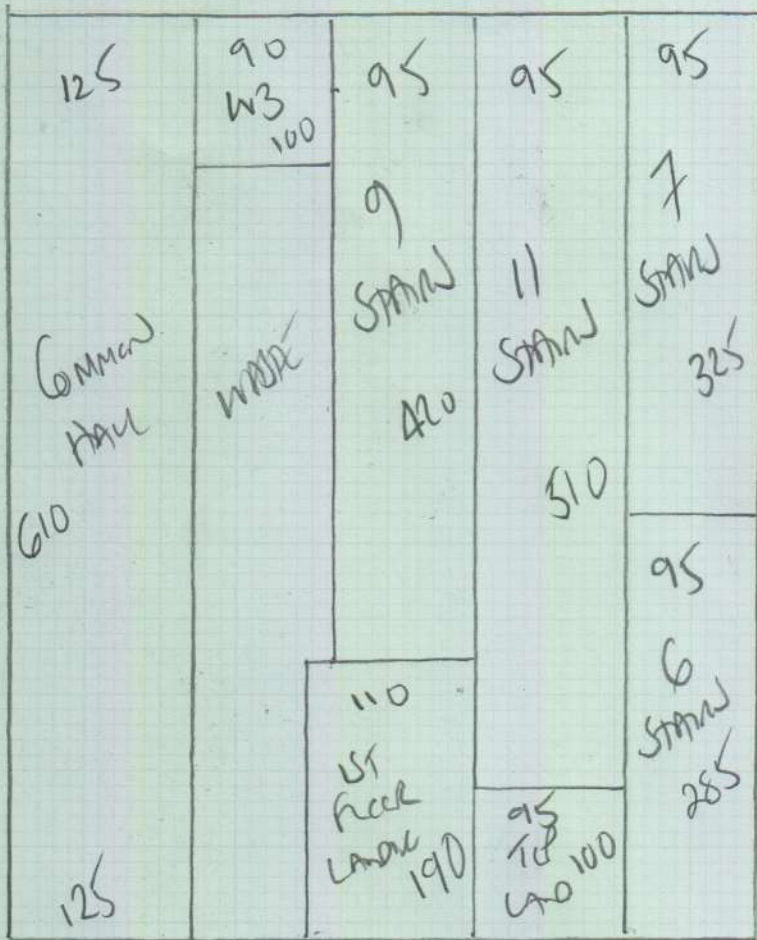 125
COMMON
HALL
610
125
90
W3
100
WASTE
95
9
STAIRS
420
110
1ST
FLOOR
LANDING
190
95
11
STAIRS
510
95
TOP
LAND
100
95
7
STAIRS
325
95
6
STAIRS
285